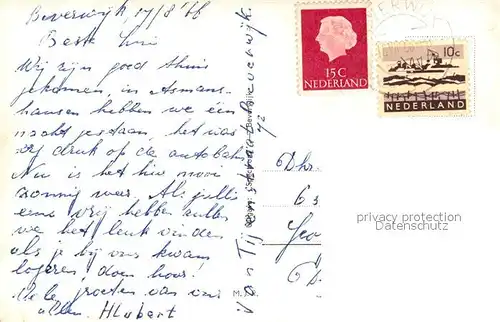 Beverwijk 17/8 '66
Beste
Wij zijn goed thuis
gekomen, in Asmans-
hausen hebben we één
nacht gestaan, het was
erg druk op de autobahn
Nu is het hier mooi
zonnig weer. Als jullie
eens vrij hebben zullen
we het leuk vinden
als je bij ons kwam
logeren, doen hoor!
Vele groeten van ons
allen. Hubert
Beverwijk.
15C
NEDERLAND
10c
NEDERLAND
Dhr.
63
privacy protection
Datenschutz
M.